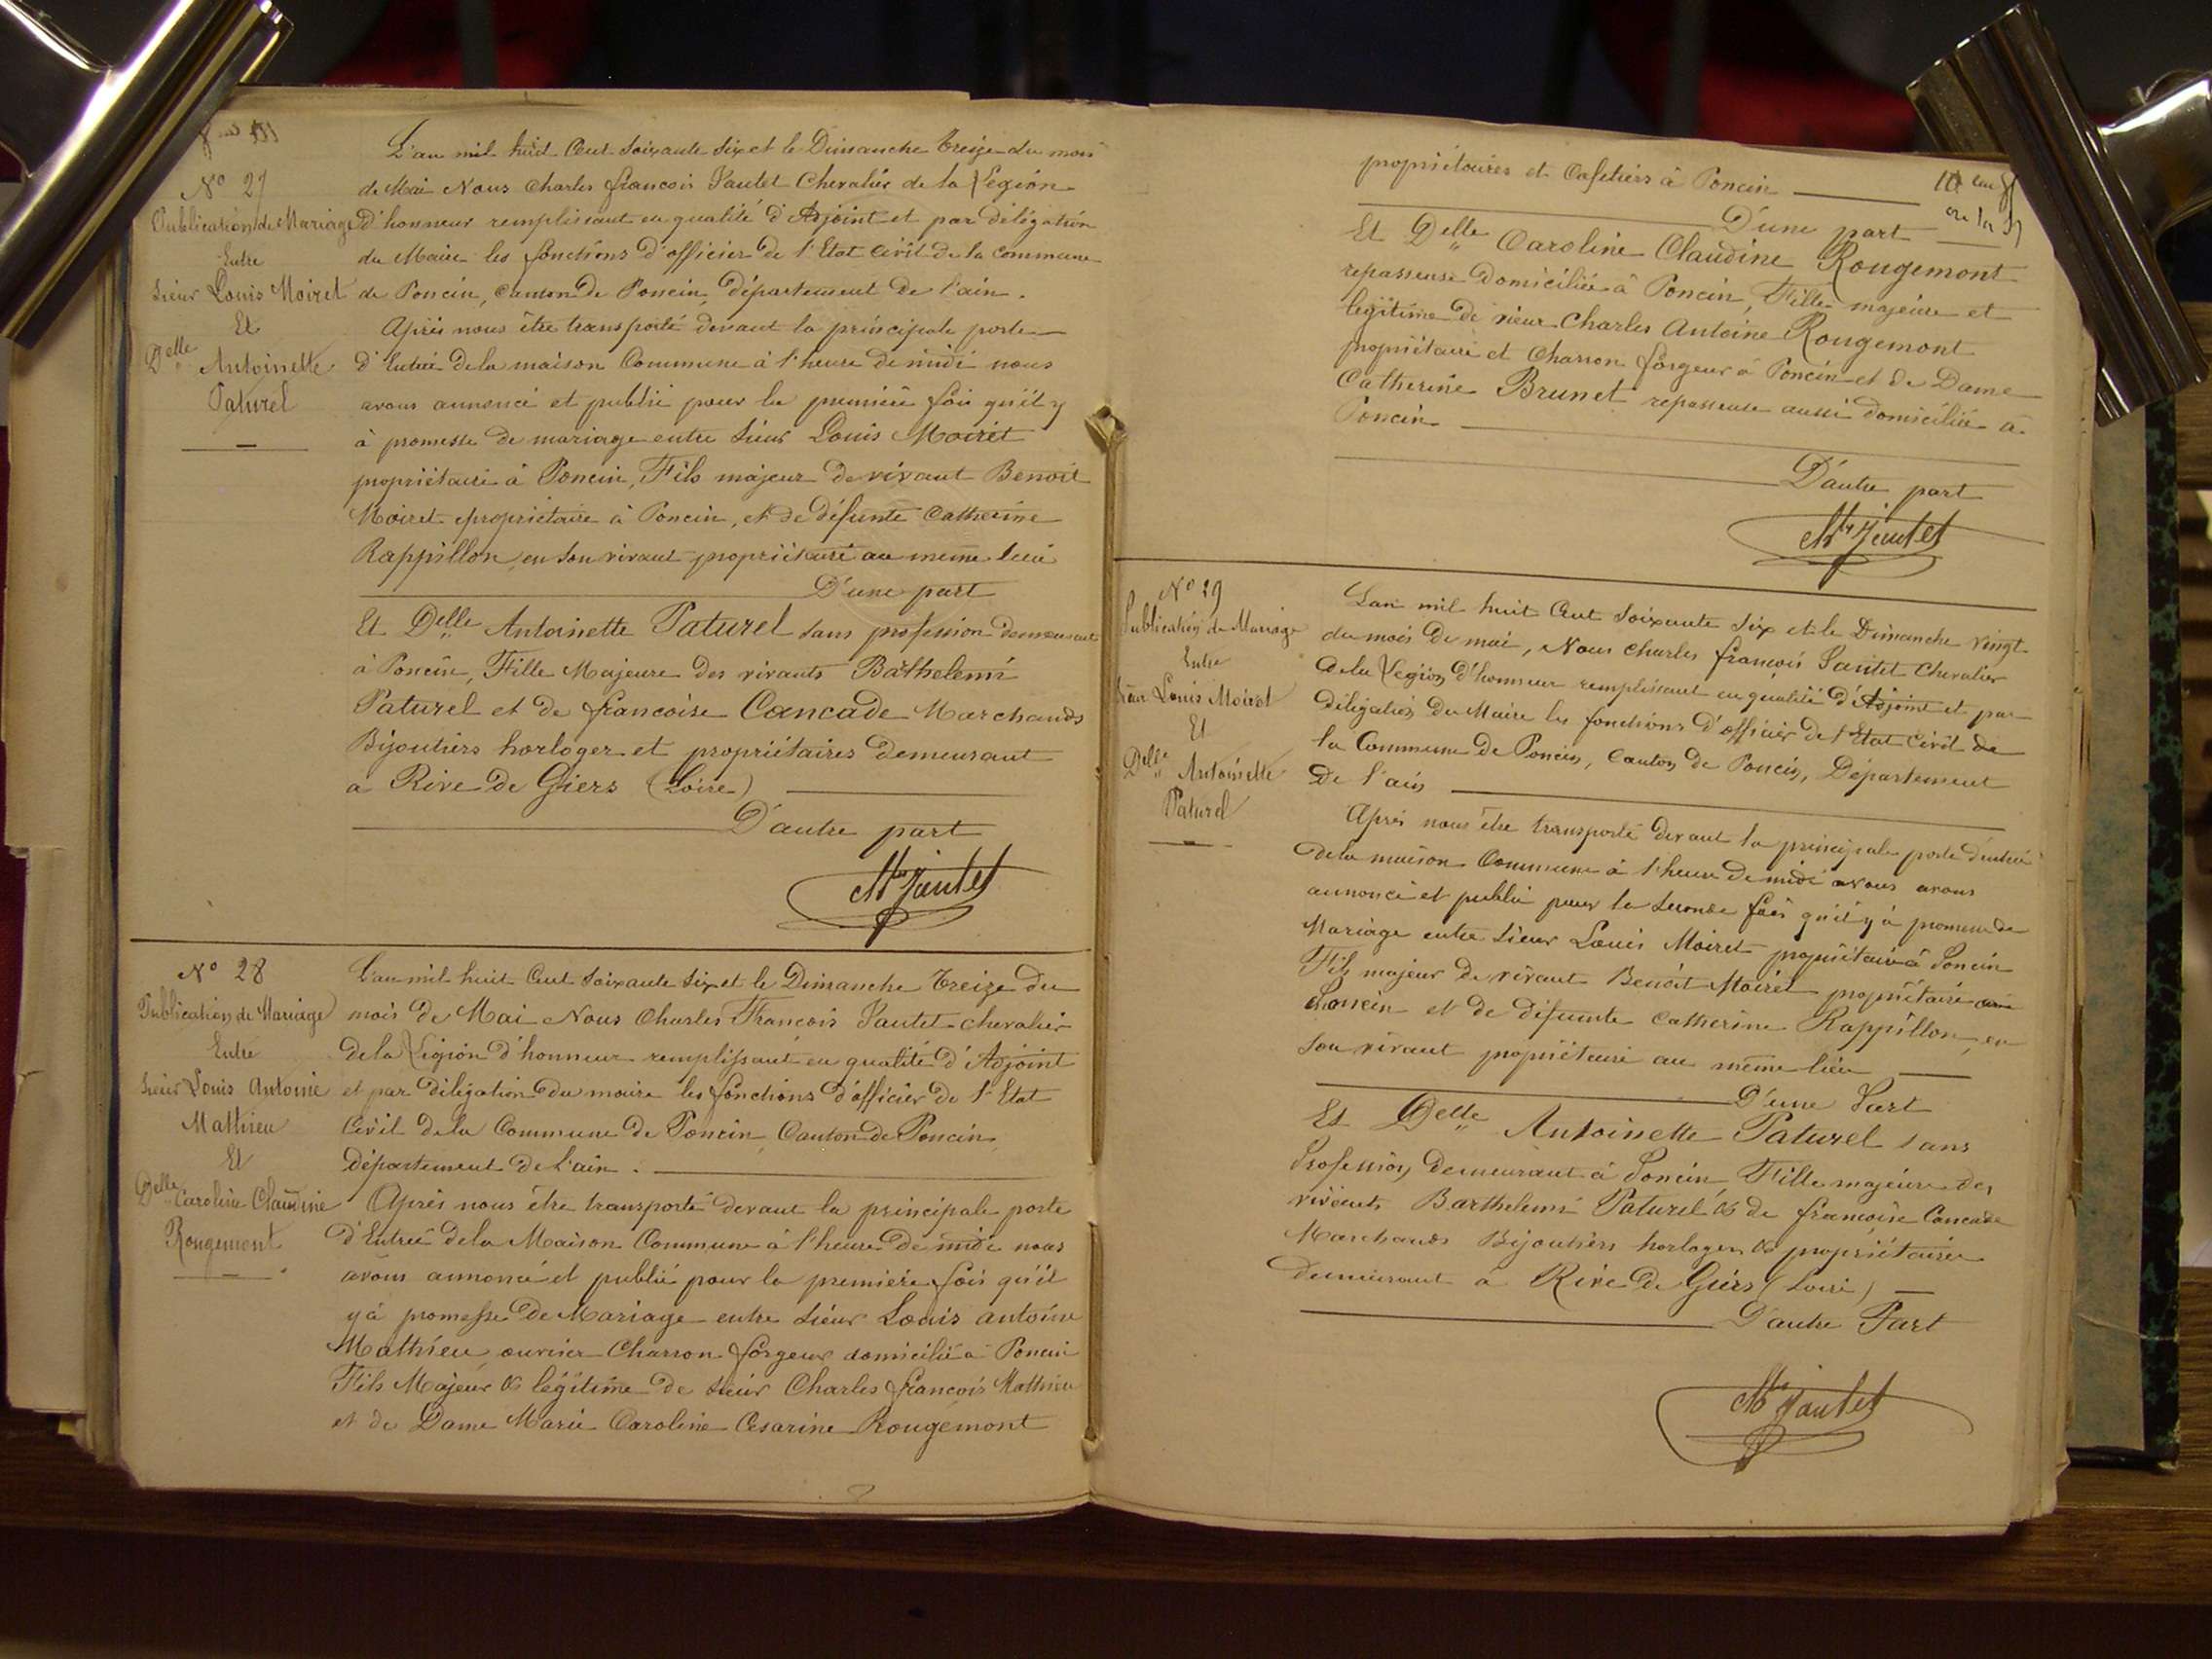 N° 27
Publication de Mariage
Entre
Sieur Louis Moiret
Et
Delle Antoinette
Paturel
L'an mil huit Cent soixante six et le Dimanche treize du mois
de Mai Nous Charles francois Jautet Chevalier de la Légion
d'honneur remplissant en qualité d'Adjoint et par délégation
du Maire les fonctions d'officier de l'Etat Civil de la Commune
de Poncin, Canton de Poncin, département de l'ain.
Après nous être transporté devant la principale porte
d'Entrée de la maison Commune à l'heure de midi nous
avons annoncé et publié pour la première fois qu'il y
à promesse de mariage entre Sieur Louis Moiret
propriétaire à Poncin, Fils majeur de vivant Benoit
Moiret propriétaire à Poncin, et de défunte Catherine
Rappillon en son vivant propriétaire au meme lieu
D'une part
Et Delle Antoinette Paturel sans profession demeurant
à Poncin, Fille Majeure des vivants Barthelemi
Paturel et de francoise Cancade Marchands
Bijoutiers horloger et propriétaires demeurant
a Rive de Giers (Loire)
D'autre part
Jautet
N° 28
Publication de Mariage
Entre
Sieur Louis Antoine
Mathieu
Et
Delle Caroline Claudine
Rougemont
L'an mil huit Cent soixante six et le Dimanche treize du
mois de Mai Nous Charles Francois Jautet chevalier
de la Légion d'honneur remplissant en qualité d'Adjoint
et par délégation du maire les fonctions d'officier de l'Etat
Civil de la Commune de Poncin Canton de Poncin,
département de l'ain.
Après nous être transporté devant la principale porte
d'Entrée de la Maison Commune à l'heure de midi nous
avons annoncé et publié pour la première fois qu'il
y à promesse de Mariage entre Sieur Louis antoine
Mathieu ouvrier Charron forgeur domicilié à Poncin
Fils Majeur & légitime de sieur Charles francois Mathieu
et de Dame Marie Caroline Cesarine Rougemont
propriétaires et Cafetiers à Poncin
D'une part
Et Delle Caroline Claudine Rougemont
repasseuse domiciliée à Poncin, Fille majeure et
légitime de sieur Charles Antoine Rougemont
propriétaire et Charron forgeur à Poncin et de Dame
Catherine Brunet repasseuse aussi domiciliée à
Poncin
D'autre part
Jautet
N° 29
Publication de Mariage
Entre
Sieur Louis Moiret
Et
Delle Antoinette
Paturel
L'an mil huit Cent soixante six et le Dimanche vingt
du mois de mai, Nous Charles francois Jautet Chevalier
de la Légion d'honneur remplissant en qualité d'Adjoint et par
délégation du Maire les fonctions d'officier de l'Etat Civil de
la Commune de Poncin, Canton de Poncin, Département
De l'ain
Après nous être transporté devant la principale porte d'entrée
de la maison Commune à l'heure de midi avons avons
annoncé et publié pour la seconde fois qu'il y à promesse de
Mariage entre Sieur Louis Moiret propriétaire à Poncin
Fils majeur de vivant Benoit Moiret propriétaire
Poncin et de défunte Catherine Rappillon, en
son vivant propriétaire au même lieu
D'une Part
Et Delle Antoinette Paturel sans
Profession, demeurant à Poncin Fille majeure des
vivants Barthelemi Paturel & de francoise Cancade
Marchands Bijoutiers horlogers & propriétaires
demeurant à Rive de Giers (Loire)
D'autre Part
Jautet